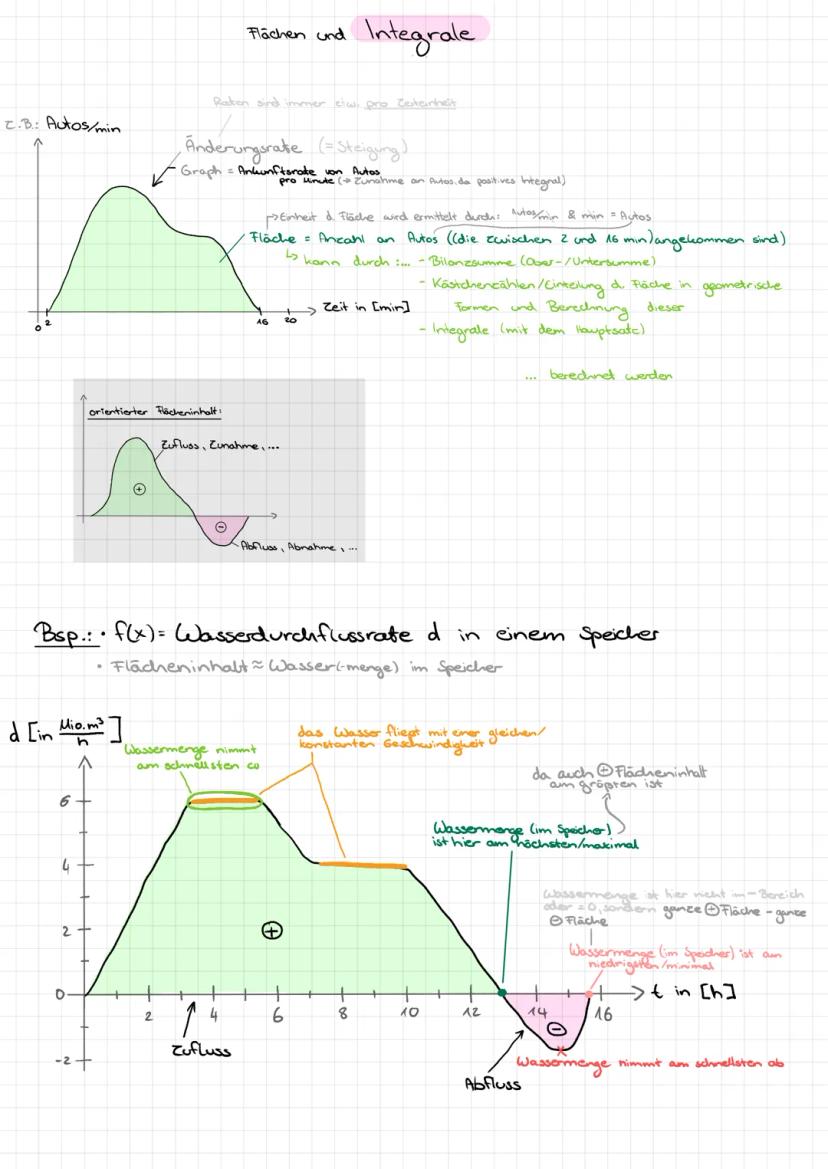 Flächen und Integrale
Raten sind immer etw. pro Zeiteinheit
z.B.: Autos/min
Änderungsrate (= Steigung)
Graph = Ankunftsrate von Autos
pro Minute (→ Zunahme an Autos, da positives Integral)
Einheit d. Fläche wird ermittelt durch: Autos/min & min = Autos
Fläche = Anzahl an Autos ((die zwischen 2 und 16 min) angekommen sind)
kann durch :... - Bilanzsumme (Ober-/Untersumme)
- Kästchenzählen/Einteilung d. Fläche in geometrische
Formen und Berechnung dieser
- Integrale (mit dem Hauptsatz)
... berechnet werden
Zeit in [min]
0 2 16 20
orientierter Flächeninhalt:
Zufluss, Zunahme, ...
+
-
Abfluss, Abnahme, ...
Bsp.: • f(x) = Wasserdurchflussrate d in einem Speicher
• Flächeninhalt ≈ Wasser(-menge) im Speicher
d [in Mio. m³/h]
Wassermenge nimmt
am schnellsten zu
das Wasser fließt mit einer gleichen/
konstanten Geschwindigkeit
da auch ⊕ Flächeninhalt
am größten ist
Wassermenge (im Speicher)
ist hier am höchsten/maximal
Wassermenge ist hier nicht im - Bereich
oder = 0, sondern ganze ⊕ Fläche - ganze
⊖ Fläche
Wassermenge (im Speicher) ist am
niedrigsten/minimal
6
4
2
0
-2
+
2 4 6 8 10 12 14 16
t in [h]
-
Zufluss
Abfluss
Wassermenge nimmt am schnellsten ab